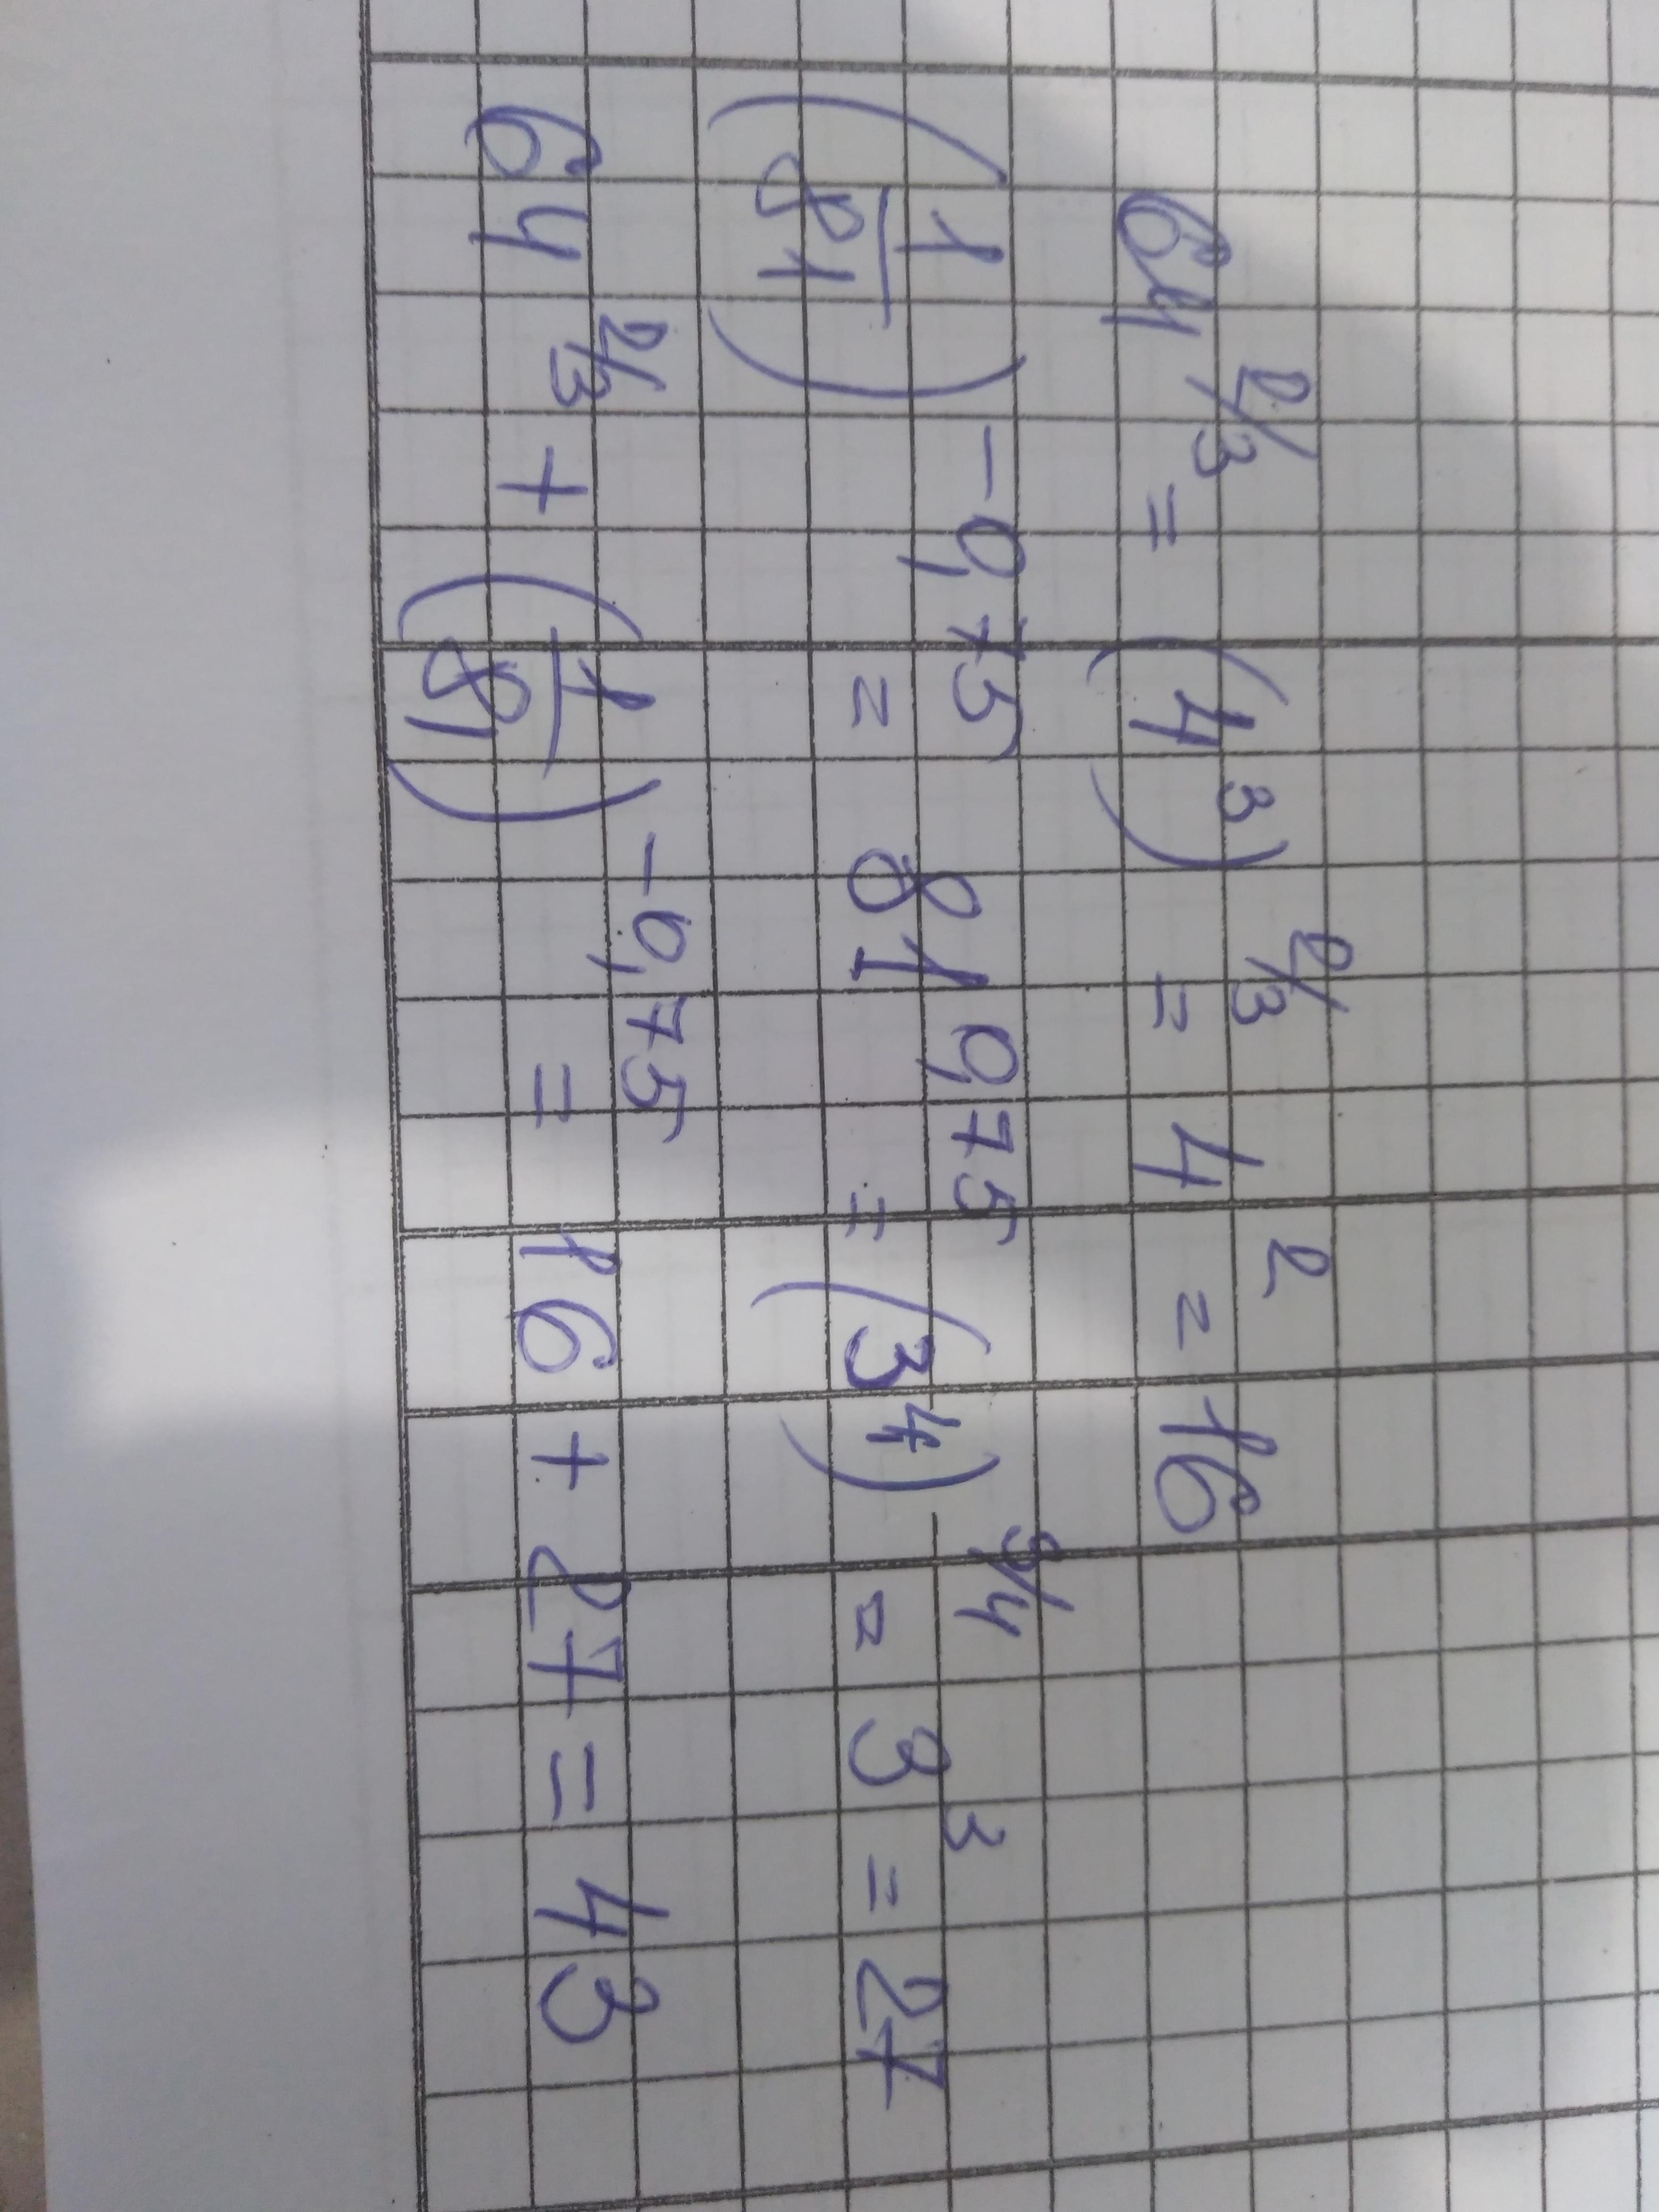 64^2/3 = (4^3)^2/3 = 4^2 = 16
(1/81)^-0,75 = 81^0,75 = (3^4)^3/4 = 3^3 = 27
64^2/3 + (1/81)^-0,75 = 16 + 27 = 43